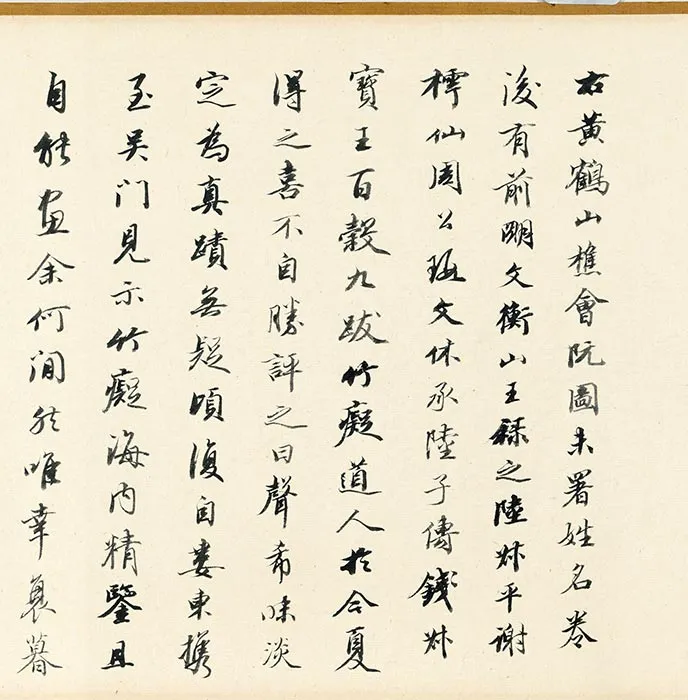 右黄鶴山樵會阮圖未署姓名卷
後有前明文衡山王祿之陸叔平謝
樗仙周公瑕文休承陸子傳錢叔
寶王百穀九跋竹癡道人於今夏
得之喜不自勝評之曰聲希味淡
定為真蹟無疑頃復自婁東攜
至吴門見示竹癡海内精鑒且
自能畫余何間然唯幸衰暮